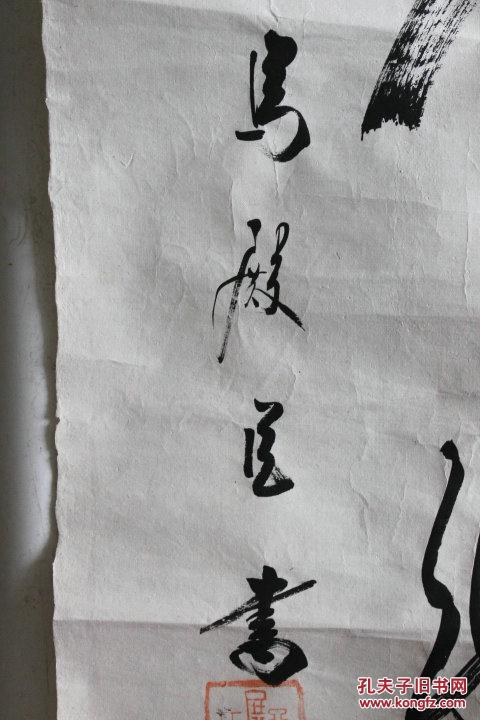 馬殿臣書
孔夫子旧书网
www.kongfz.com